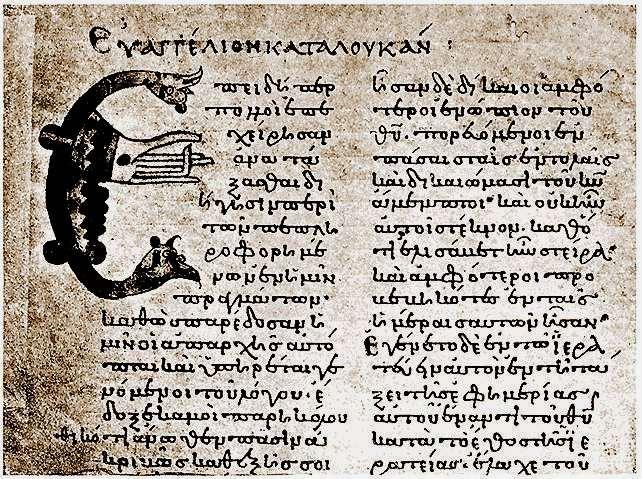 Εὐαγγέλιον κατὰ Λουκᾶν :
Ἐπειδήπερ
πολλοὶ ἐπε
χείρησαν
ἀνατά
ξασθαι δι
ήγησιν περὶ
τῶν πεπλη
ροφορημέ
νων ἐν ἡμῖν
πραγμάτων.
καθὼς παρέδοσαν ἡ
μῖν οἱ ἀπαρχῆς αὐτό
πται καὶ ὑπηρέται γε
νόμενοι τοῦ λόγου. ἔ
δοξε κἀμοὶ παρηκολου
θηκότι ἄνωθεν πᾶσιν ἀ
κριβῶς καθεξῆς σοι
ἦσαν δὲ δίκαιοι ἀμφό
τεροι ἐνώπιον τοῦ
θ̅υ̅. πορευόμενοι ἐν
πάσαις ταῖς ἐντολαῖς
καὶ δικαιώμασι τοῦ κ̅υ̅
ἄμεμπτοι· καὶ οὐκ ἦν
αὐτοῖς τέκνον. καθό
τι ἐλισάβετ ἦν στεῖρα.
καὶ ἀμφότεροι προ
βεβηκότες ἐν ταῖς
ἡμέραις αὐτῶν ἦσαν·
Ἐγένετο δὲ ἐν τῷ ἱερα
τεύειν αὐτὸν ἐν τῇ τά
ξει τῆς ἐφημερίας
αὐτοῦ ἔναντι τοῦ θ̅υ̅
κατὰ τὸ ἔθος τῆς ἱε
ρατείας. ἔλαχε τοῦ